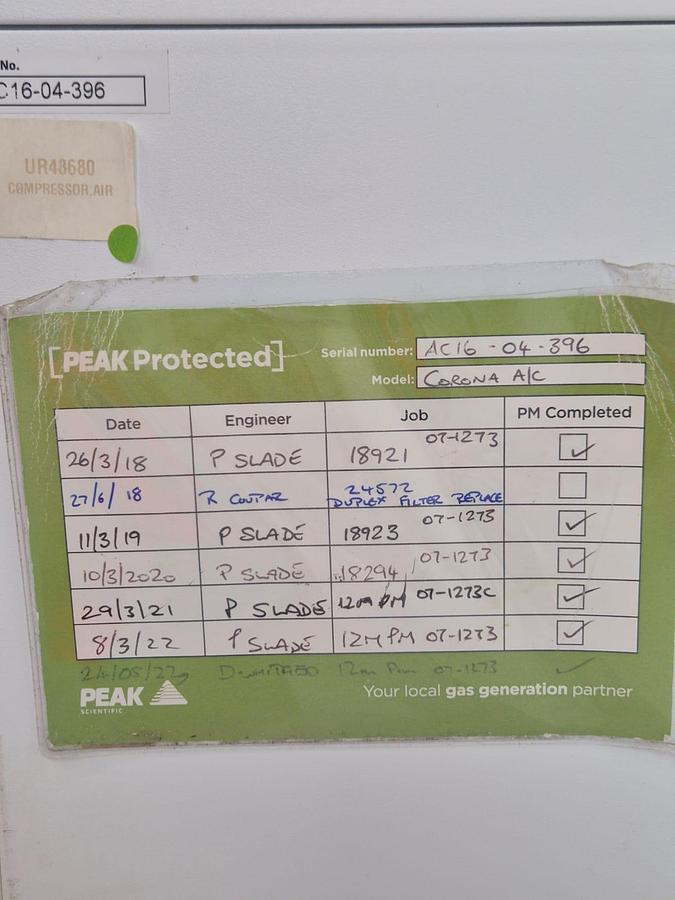 No.
C16-04-396
UR48680
COMPRESSOR,AIR
[PEAK Protected]
Serial number: AC16-04-396
Model: CORONA A/C
Date Engineer Job PM Completed
26/3/18 P SLADE 18921 07-1273 ✓
27/6/18 R COUPAR 24572 DUPLEX FILTER REPLACE
11/3/19 P SLADE 18923 07-1273 ✓
10/3/2020 P SLADE 18294 07-1273 ✓
29/3/21 P SLADE 12M PM 07-1273C ✓
8/3/22 P SLADE 12M PM 07-1273 ✓
07-1273 ✓
PEAK
SCIENTIFIC
Your local gas generation partner